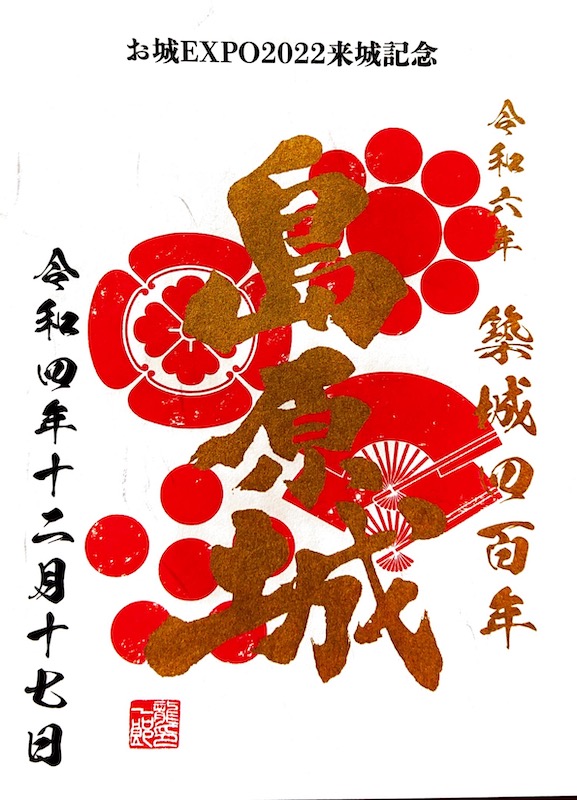 お城EXPO2022来城記念
令和六年 築城四百年
島原城
令和四年十二月十七日